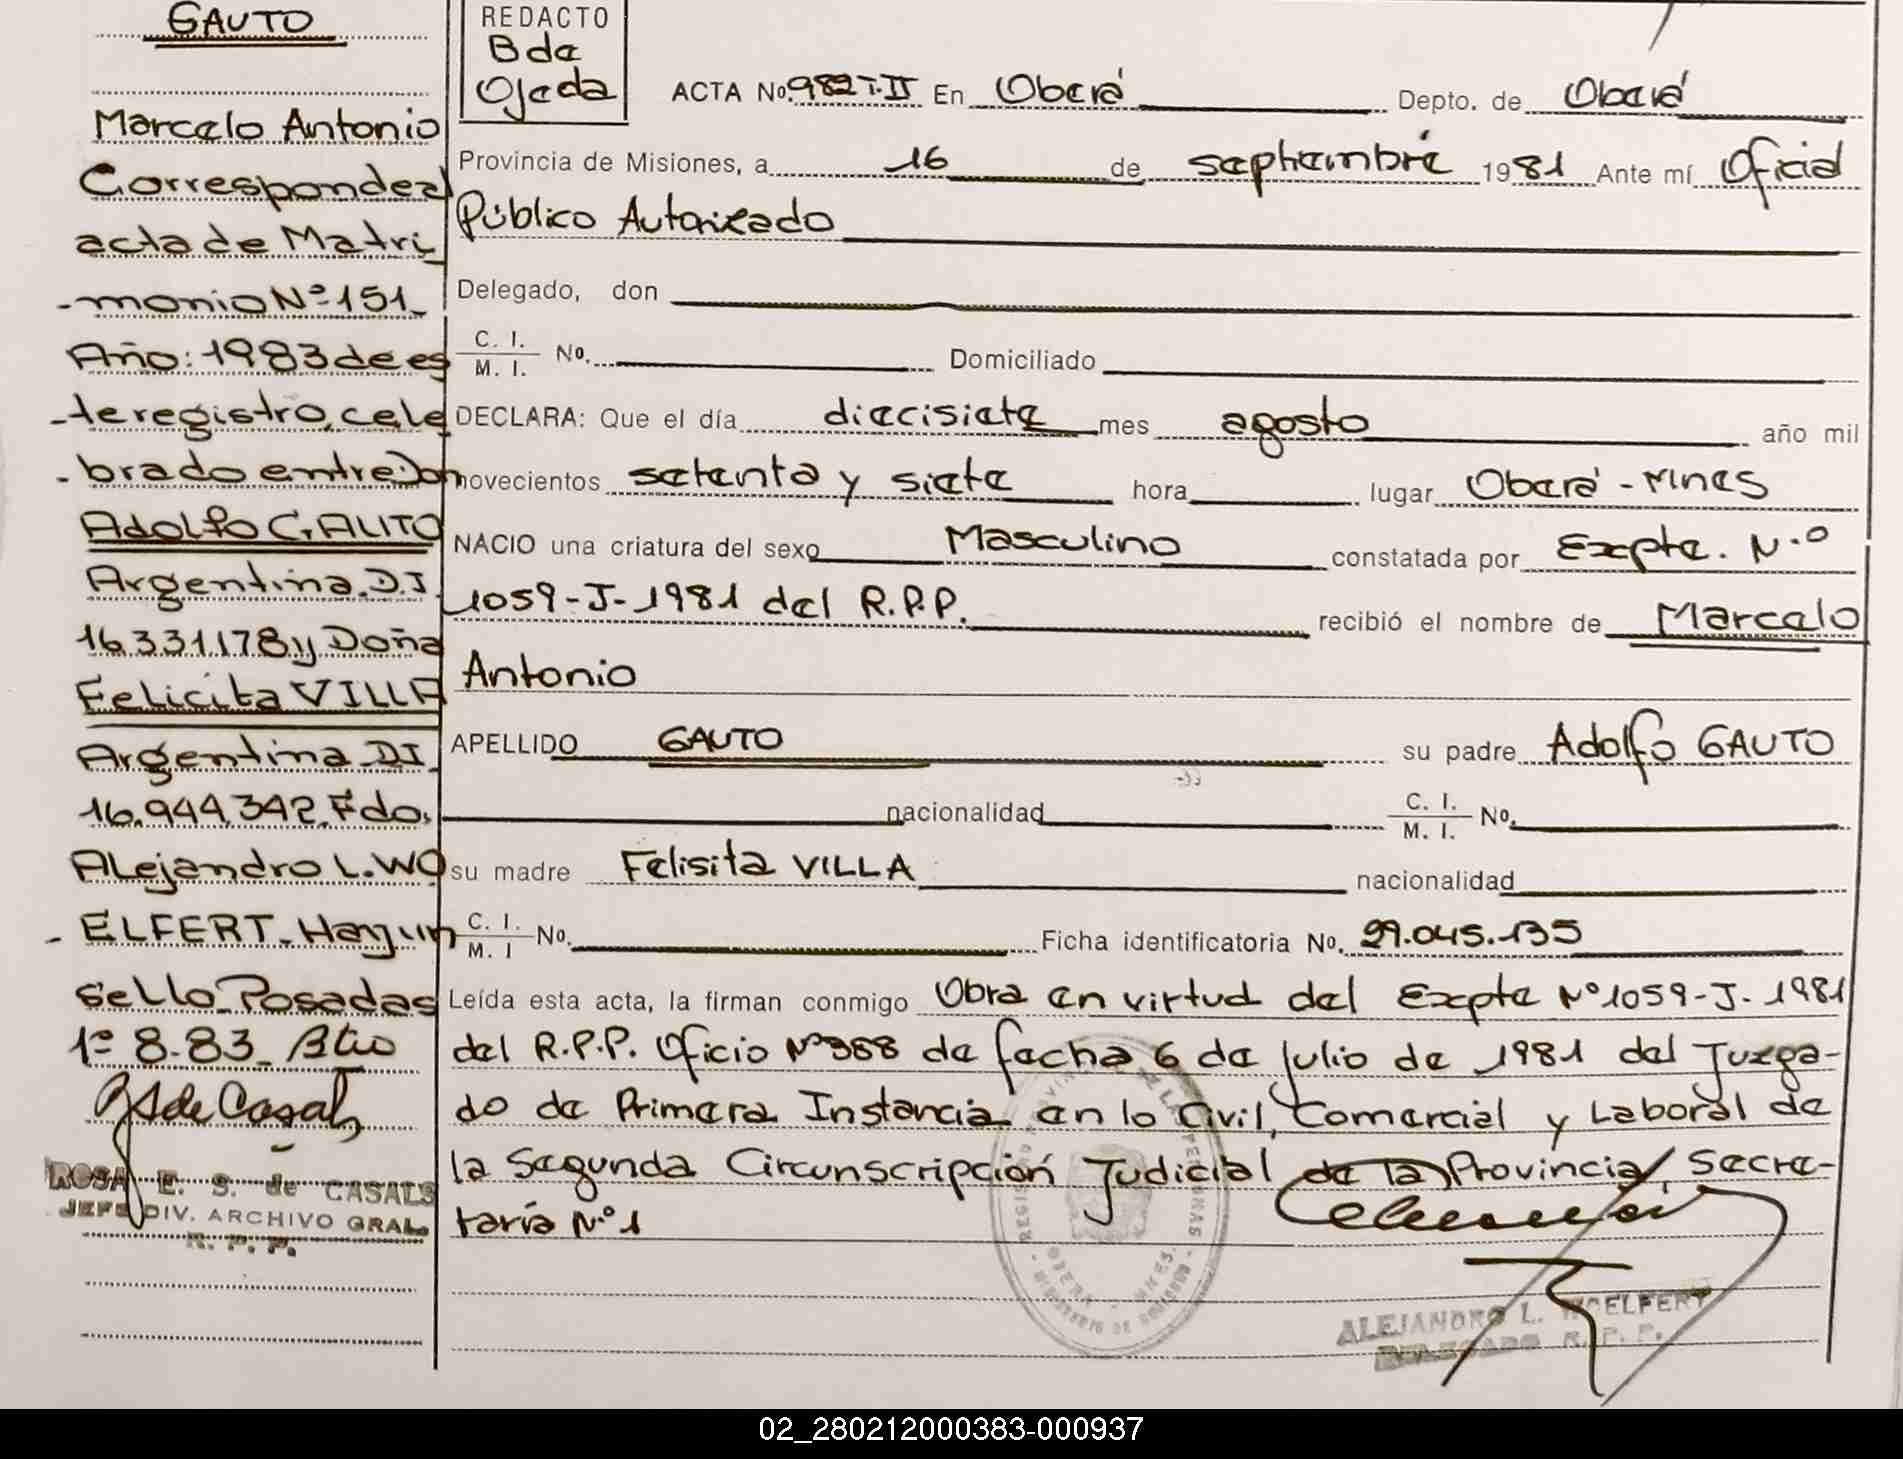 GAUTO
Marcelo Antonio
Corresponde al
acta de Matri
-monio Nº 151
Año: 1983 de es
-te registro, cele
-brado entre: Don
Adolfo GAUTO
Argentina. D.I
16.331.178 y Doña
Felicita VILLA
Argentina DI
16.944.342. Fdo.
Alejandro L. WO
-ELFERT. Hay un
Sello. Posadas
1º 8-83
ROSA E. S. de CASALS
JEFE DIV. ARCHIVO GRAL.
R. P. P.
REDACTO
Bda
Ojeda
ACTA No. 982 T.II En Oberá Depto. de Oberá
Provincia de Misiones, a 16 de septiembre 1981 Ante mí Oficial
Público Autorizado
Delegado, don
C. I.
M. I. No. Domiciliado
DECLARA: Que el día diecisiete mes agosto año mil
novecientos setenta y siete hora lugar Oberá - Mnes
NACIO una criatura del sexo Masculino constatada por Expte. N.º
1059-J-1981 del R.P.P. recibió el nombre de Marcelo
Antonio
APELLIDO GAUTO su padre Adolfo GAUTO
nacionalidad C. I.
M. I. No.
su madre Felisita VILLA nacionalidad
C. I.
M. I No. Ficha identificatoria No. 29.045.135
Leída esta acta, la firman conmigo Obra en virtud del Expte Nº 1059-J-1981
del R.P.P. Oficio Nº 368 de fecha 6 de julio de 1981 del Juzga-
do de Primera Instancia en lo Civil, Comercial y Laboral de
la Segunda Circunscripción Judicial de la Provincia, Secre-
taría N.º 1
ALEJANDRO L. WOELFERT
DELEGADO R. P. P.
02_280212000383-000937